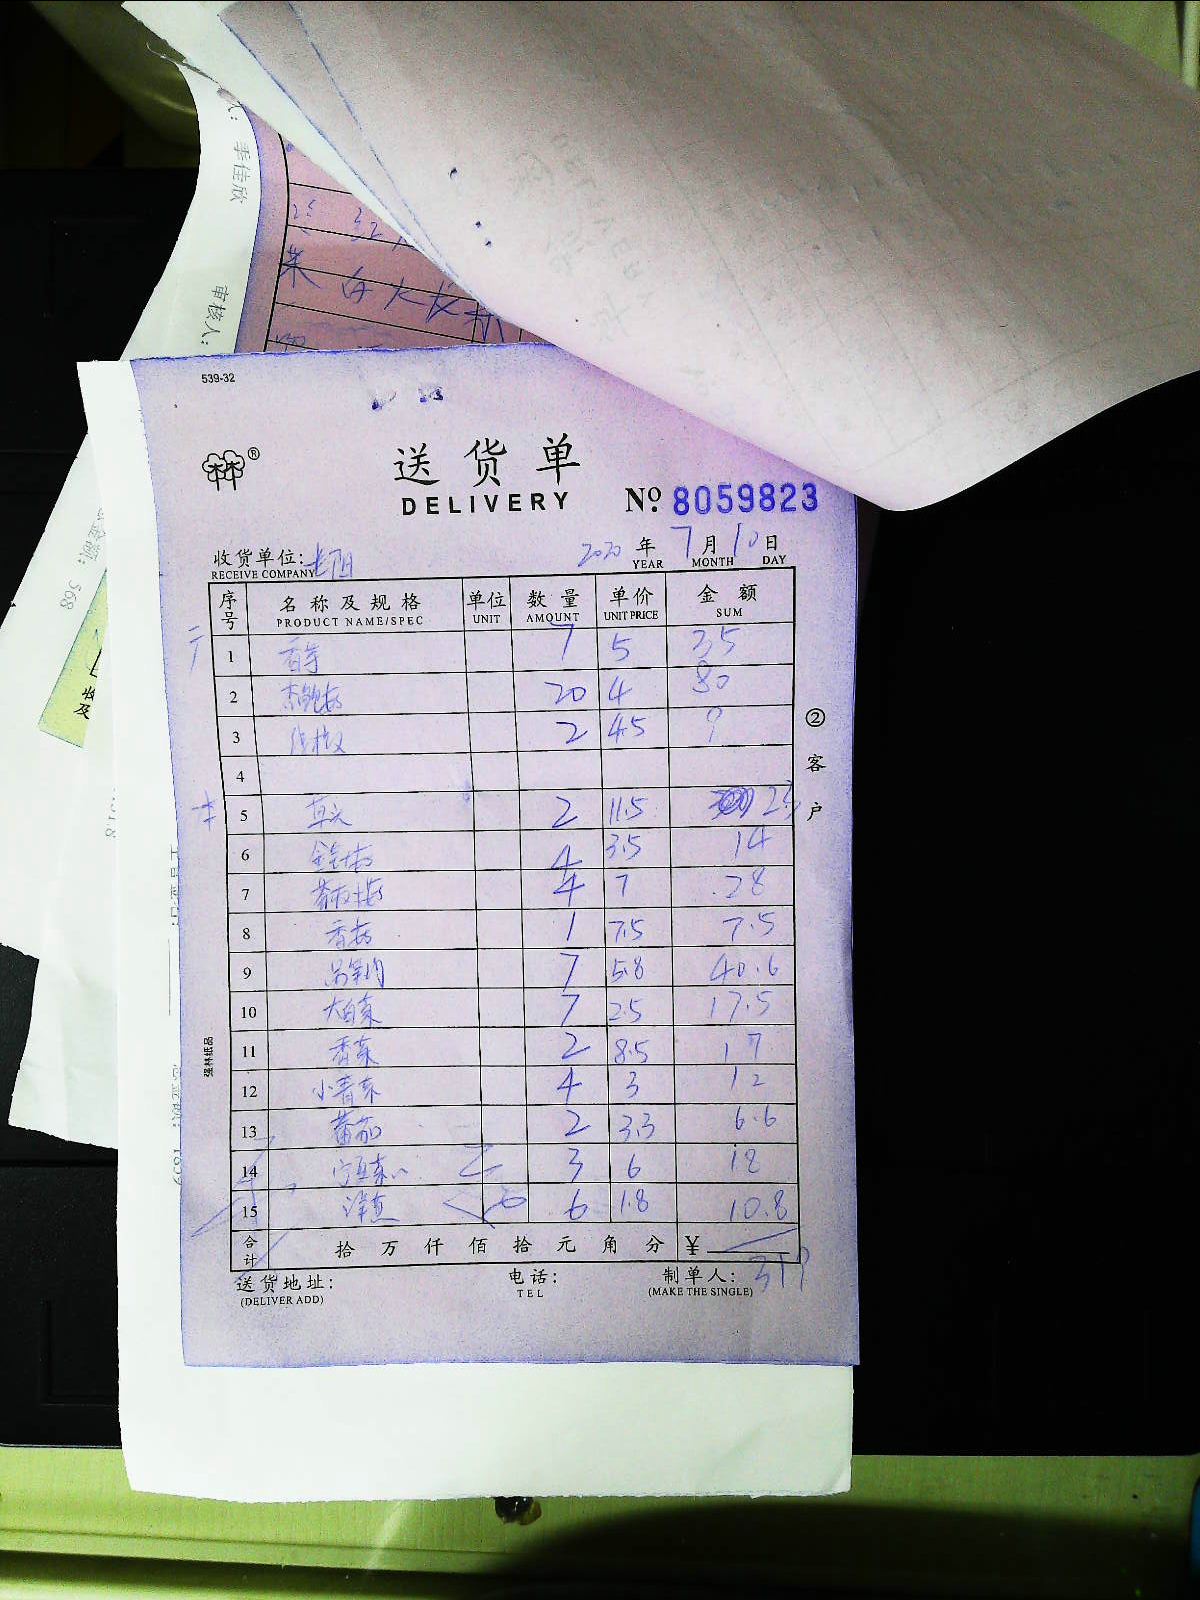 季佳欣
审核人：
菜 白 大
539-32
林林®
送货单
DELIVERY Nº 8059823
收货单位: 长阳 2020 年 7 月 10 日
RECEIVE COMPANY YEAR MONTH DAY
序号 名称及规格 单位 数量 单价 金额
PRODUCT NAME/SPEC UNIT AMOUNT UNIT PRICE SUM
1 香芋 7 5 35
2 杏鲍菇 20 4 80
3 线椒 2 4.5 9
4
5 2 11.5 23
6 金针菇 4 3.5 14
7 4 7 28
8 香菇 1 7.5 7.5
9 7 5.8 40.6
10 大白菜 7 2.5 17.5
11 香菜 2 8.5 17
12 小青菜 4 3 12
13 蕃茄 2 3.3 6.6
14 3 6 18
15 洋葱 6 1.8 10.8
合计 拾 万 仟 佰 拾 元 角 分 ¥
319
送货地址: 电话: 制单人:
(DELIVER ADD) TEL (MAKE THE SINGLE)
②客户
强林纸品
金额: 568
收
及